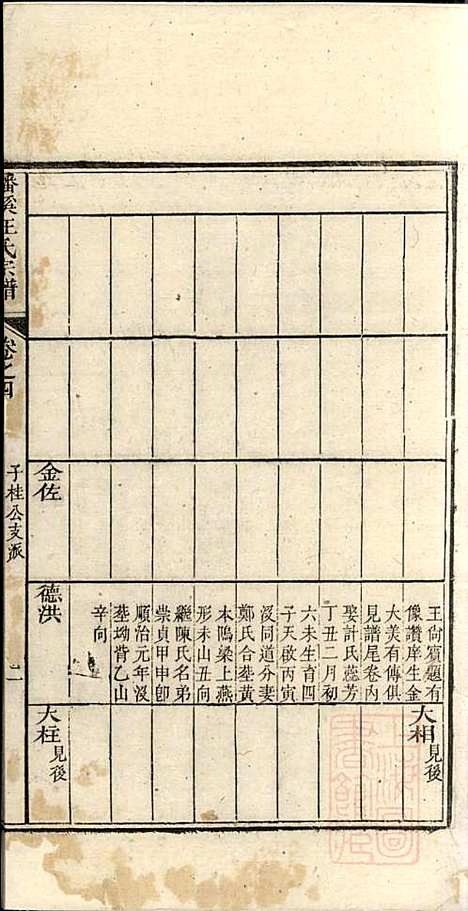 王尙賓題有
像讚庠生金
大美有傳俱
見譜尾卷內
娶計氏蕊芳
丁丑二月初
六未生育四
子天啟丙寅
沒同道分妻
鄭氏合塟黃
本隝梁上燕
形未山丑向
繼陳氏名弟
崇貞甲申卽
順治元年沒
塟坳背乙山
辛向
大相見後
金佐
德洪
大柱見後
王氏宗譜
卷之四
子桂公支派
二